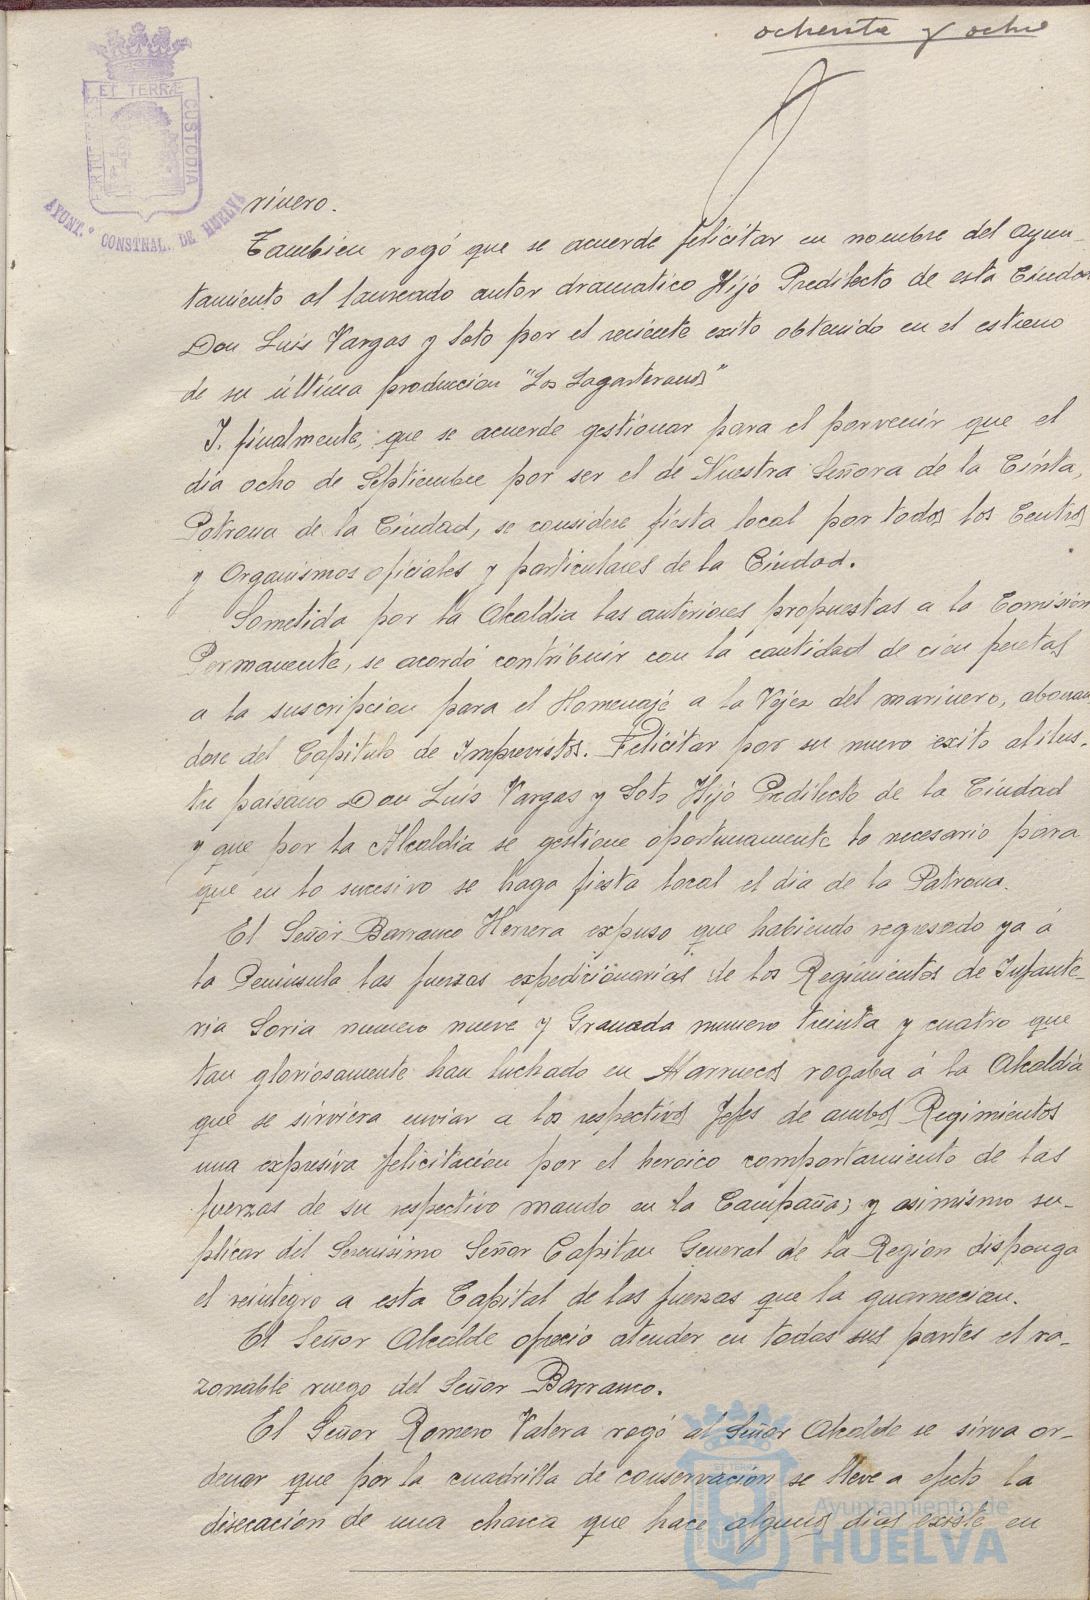 ochenta y ocho
ET TERRÆ
CUSTODIA
AYUNT.º CONSTNAL. DE HUELVA
rinero.
Tambien rogó que se acuerde felicitar en nombre del Ayun-
tamiento al laureado autor dramatico Hijo Predilecto de esta Ciudad
Don Luis Vargas y Soto por el reciente exito obtenido en el estreno
de su última produccion "Los Lagarteranos"
Y. finalmente, que se acuerde gestionar para el porvenir que el
dia ocho de Septiembre por ser el de Nuestra Señora de la Cinta,
Patrona de la Ciudad, se considere fiesta local por todos los Centros
y Organismos oficiales y particulares de la Ciudad.
Sometida por la Alcaldia las anteriores propuestas a la Comisión
Permanente, se acordó contribuir con la cantidad de cien pesetas
a la suscripcion para el Homenaje a la Vejez del marinero, abonan
dose del Capitulo de Imprevistos. Felicitar por su nuevo exito al ilus-
tre paisano Don Luis Vargas y Soto Hijo Predilecto de la Ciudad
y que por la Alcaldia se gestione oportunamente lo necesario para
que en lo sucesivo se haga fiesta local el dia de la Patrona.
El Señor Barranco Herrera expuso que habiendo regresado ya á
la Peninsula las fuerzas expedicionarias de los Regimientos de Infante-
ria Soria numero nueve y Granada numero treinta y cuatro que
tan gloriosamente han luchado en Marruecos rogaba á la Alcaldia
que se sirviera enviar a los respectivos Jefes de ambos Regimientos
una expresiva felicitacion por el heroico comportamiento de las
fuerzas de su respectivo mando en la Campaña; y asimismo su-
plicar del Serenisimo Señor Capitan General de la Region disponga
el reintegro a esta Capital de las fuerzas que la guarnecian.
El Señor Alcalde ofreció atender en todas sus partes el ra-
zonable ruego del Señor Barranco.
El Señor Romero Valera rogó al Señor Alcalde se sirva or-
denar que por la cuadrilla de conservación se lleve a efecto la
disecación de una charca que hace algunos dias existe en
Ayuntamiento de
HUELVA